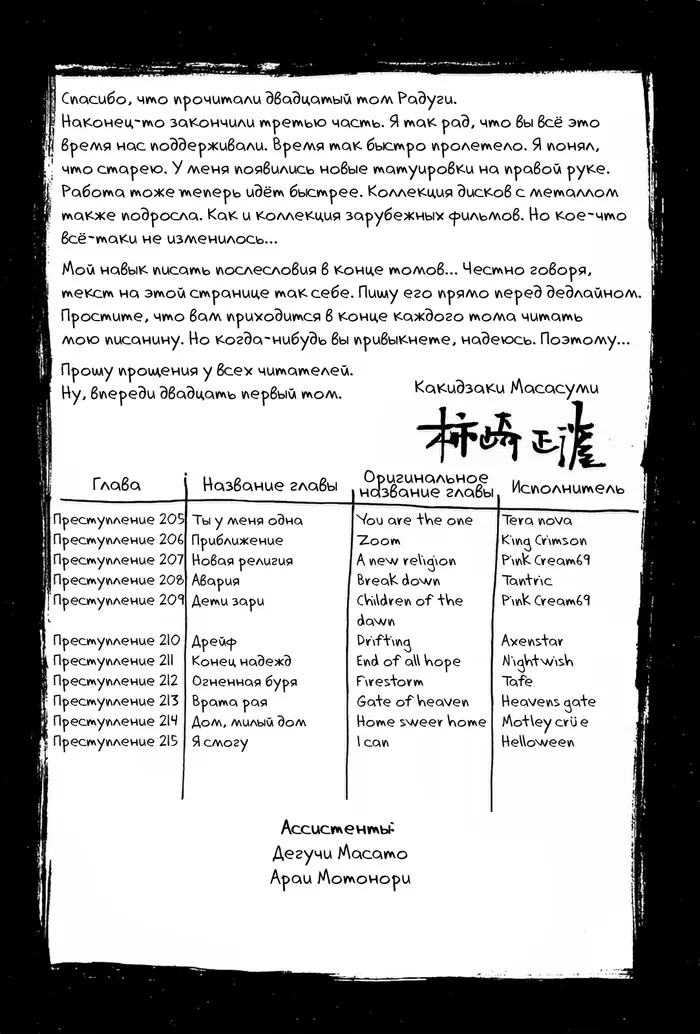 Спасибо, что прочитали двадцатый том Радуги.
Наконец-то закончили третью часть. Я так рад, что вы всё это
время нас поддерживали. Время так быстро пролетело. Я понял,
что старею. У меня появились новые татуировки на правой руке.
Работа тоже теперь идёт быстрее. Коллекция дисков с металлом
также подросла. Как и коллекция зарубежных фильмов. Но кое-что
всё-таки не изменилось...
Мой навык писать послесловия в конце томов... Честно говоря,
текст на этой странице так себе. Пишу его прямо перед дедлайном.
Простите, что вам приходится в конце каждого тома читать
мою писанину. Но когда-нибудь вы привыкнете, надеюсь. Поэтому...
Прошу прощения у всех читателей.
Ну, впереди двадцать первый том.
Какидзаки Масасуми
柿崎正澄
Глава Название главы Оригинальное название главы Исполнитель
Преступление 205 Ты у меня одна You are the one Tera nova
Преступление 206 Приближение Zoom King Crimson
Преступление 207 Новая религия A new religion Pink Cream69
Преступление 208 Авария Break down Tantric
Преступление 209 Дети зари Children of the dawn Pink Cream69
Преступление 210 Дрейф Drifting Axenstar
Преступление 211 Конец надежд End of all hope Nightwish
Преступление 212 Огненная буря Firestorm Tafe
Преступление 213 Врата рая Gate of heaven Heavens gate
Преступление 214 Дом, милый дом Home sweer home Motley crüe
Преступление 215 Я смогу I can Helloween
Ассистенты:
Дегучи Масато
Араи Мотонори